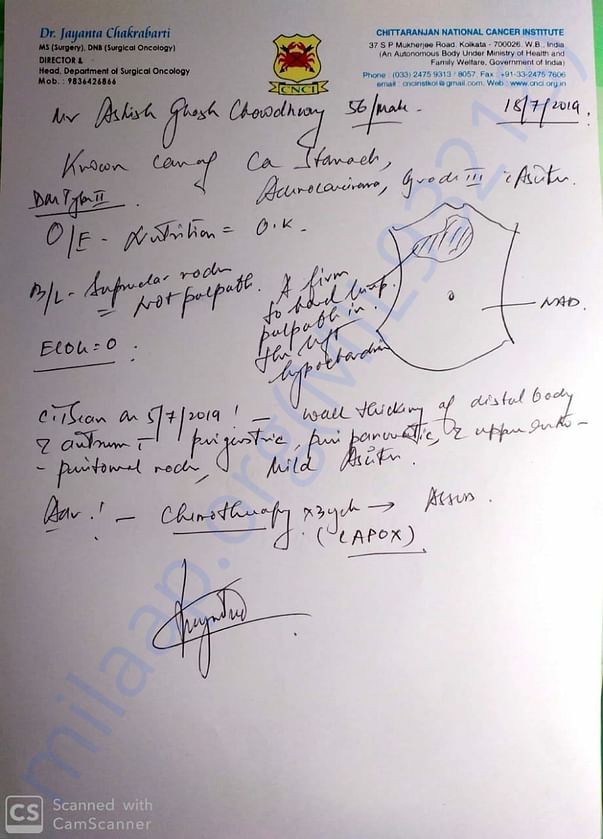 Dr. Jayanta Chakrabarti
MS (Surgery), DNB (Surgical Oncology)
DIRECTOR &
Head, Department of Surgical Oncology
Mob. : 9836426866
CNCI
CHITTARANJAN NATIONAL CANCER INSTITUTE
37 S P Mukherjee Road. Kolkata - 700026. W.B., India
(An Autonomous Body Under Ministry of Health and
Family Welfare, Government of India)
Phone : (033) 2475 9313 / 8057, Fax : +91-33-2475 7606
email : cncinstkol@gmail.com, Web : www.cnci.org.in
Mr Ashish Ghosh Chowdhury 56/Male. 18/7/2019.
Known case of Ca Stomach,
Adenocarcinoma, Grade III Ascites.
O/E - Nutrition = O.K.
B/L - Supraclar node
= Not palpable.
A firm
to hard lump
palpable in
the left
hypochondria
NAD
ECOG = 0
CT Scan on 5/7/2019 ! - wall thicking of distal body
& antrum perigastric, peri pancreatic, & upper retro-
- peritoneal node, Mild Ascites.
Adv ! - Chemotherapy x3cycle → Assess.
(CAPOX)
milaap.org
CS Scanned with
CamScanner